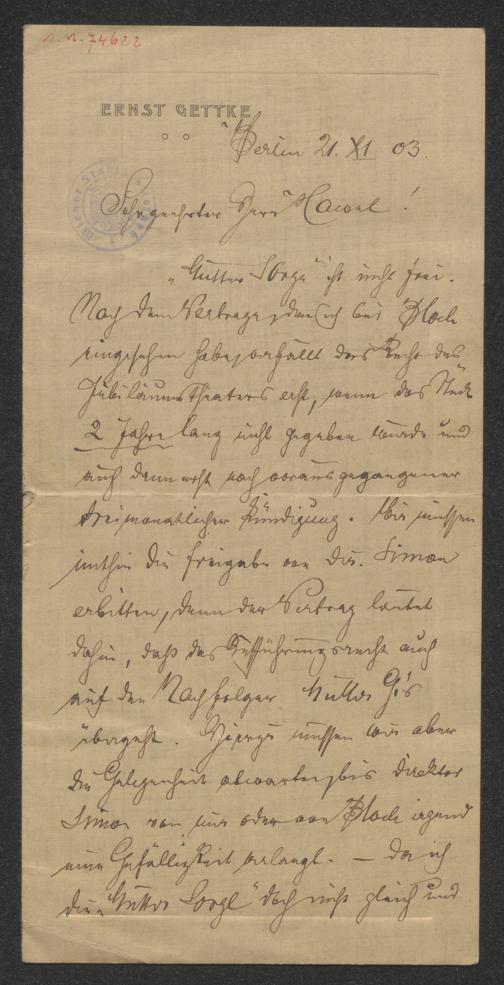 n. n. 74622
ERNST GETTKE
Berlin 21. XI 03.
Sehr geehrter Herr Hawel!
„Mutter Sorge" ist nicht frei.
Nach dem Vertrage, den ich bei Bloch
eingesehen habe, verfällt das Recht des
Jubiläums Theaters erst, wenn das Stück
2 Jahre lang nicht gegeben wurde und
auch dann erst nach vorausgegangener
dreimonatlicher Kündigung. Wir müssen
mithin die Freigabe von Dir. Simon
erbitten, denn der Vertrag lautet
dahin, daß das Aufführungsrecht auch
auf den Nachfolger Müller G's
übergeht. Hierzu müssen wir aber
die Gelegenheit abwarten, bis Direktor
Simon von mir oder von Bloch irgend
eine Gefälligkeit verlangt. — Da ich
die „Mutter Sorge" doch nicht gleich und